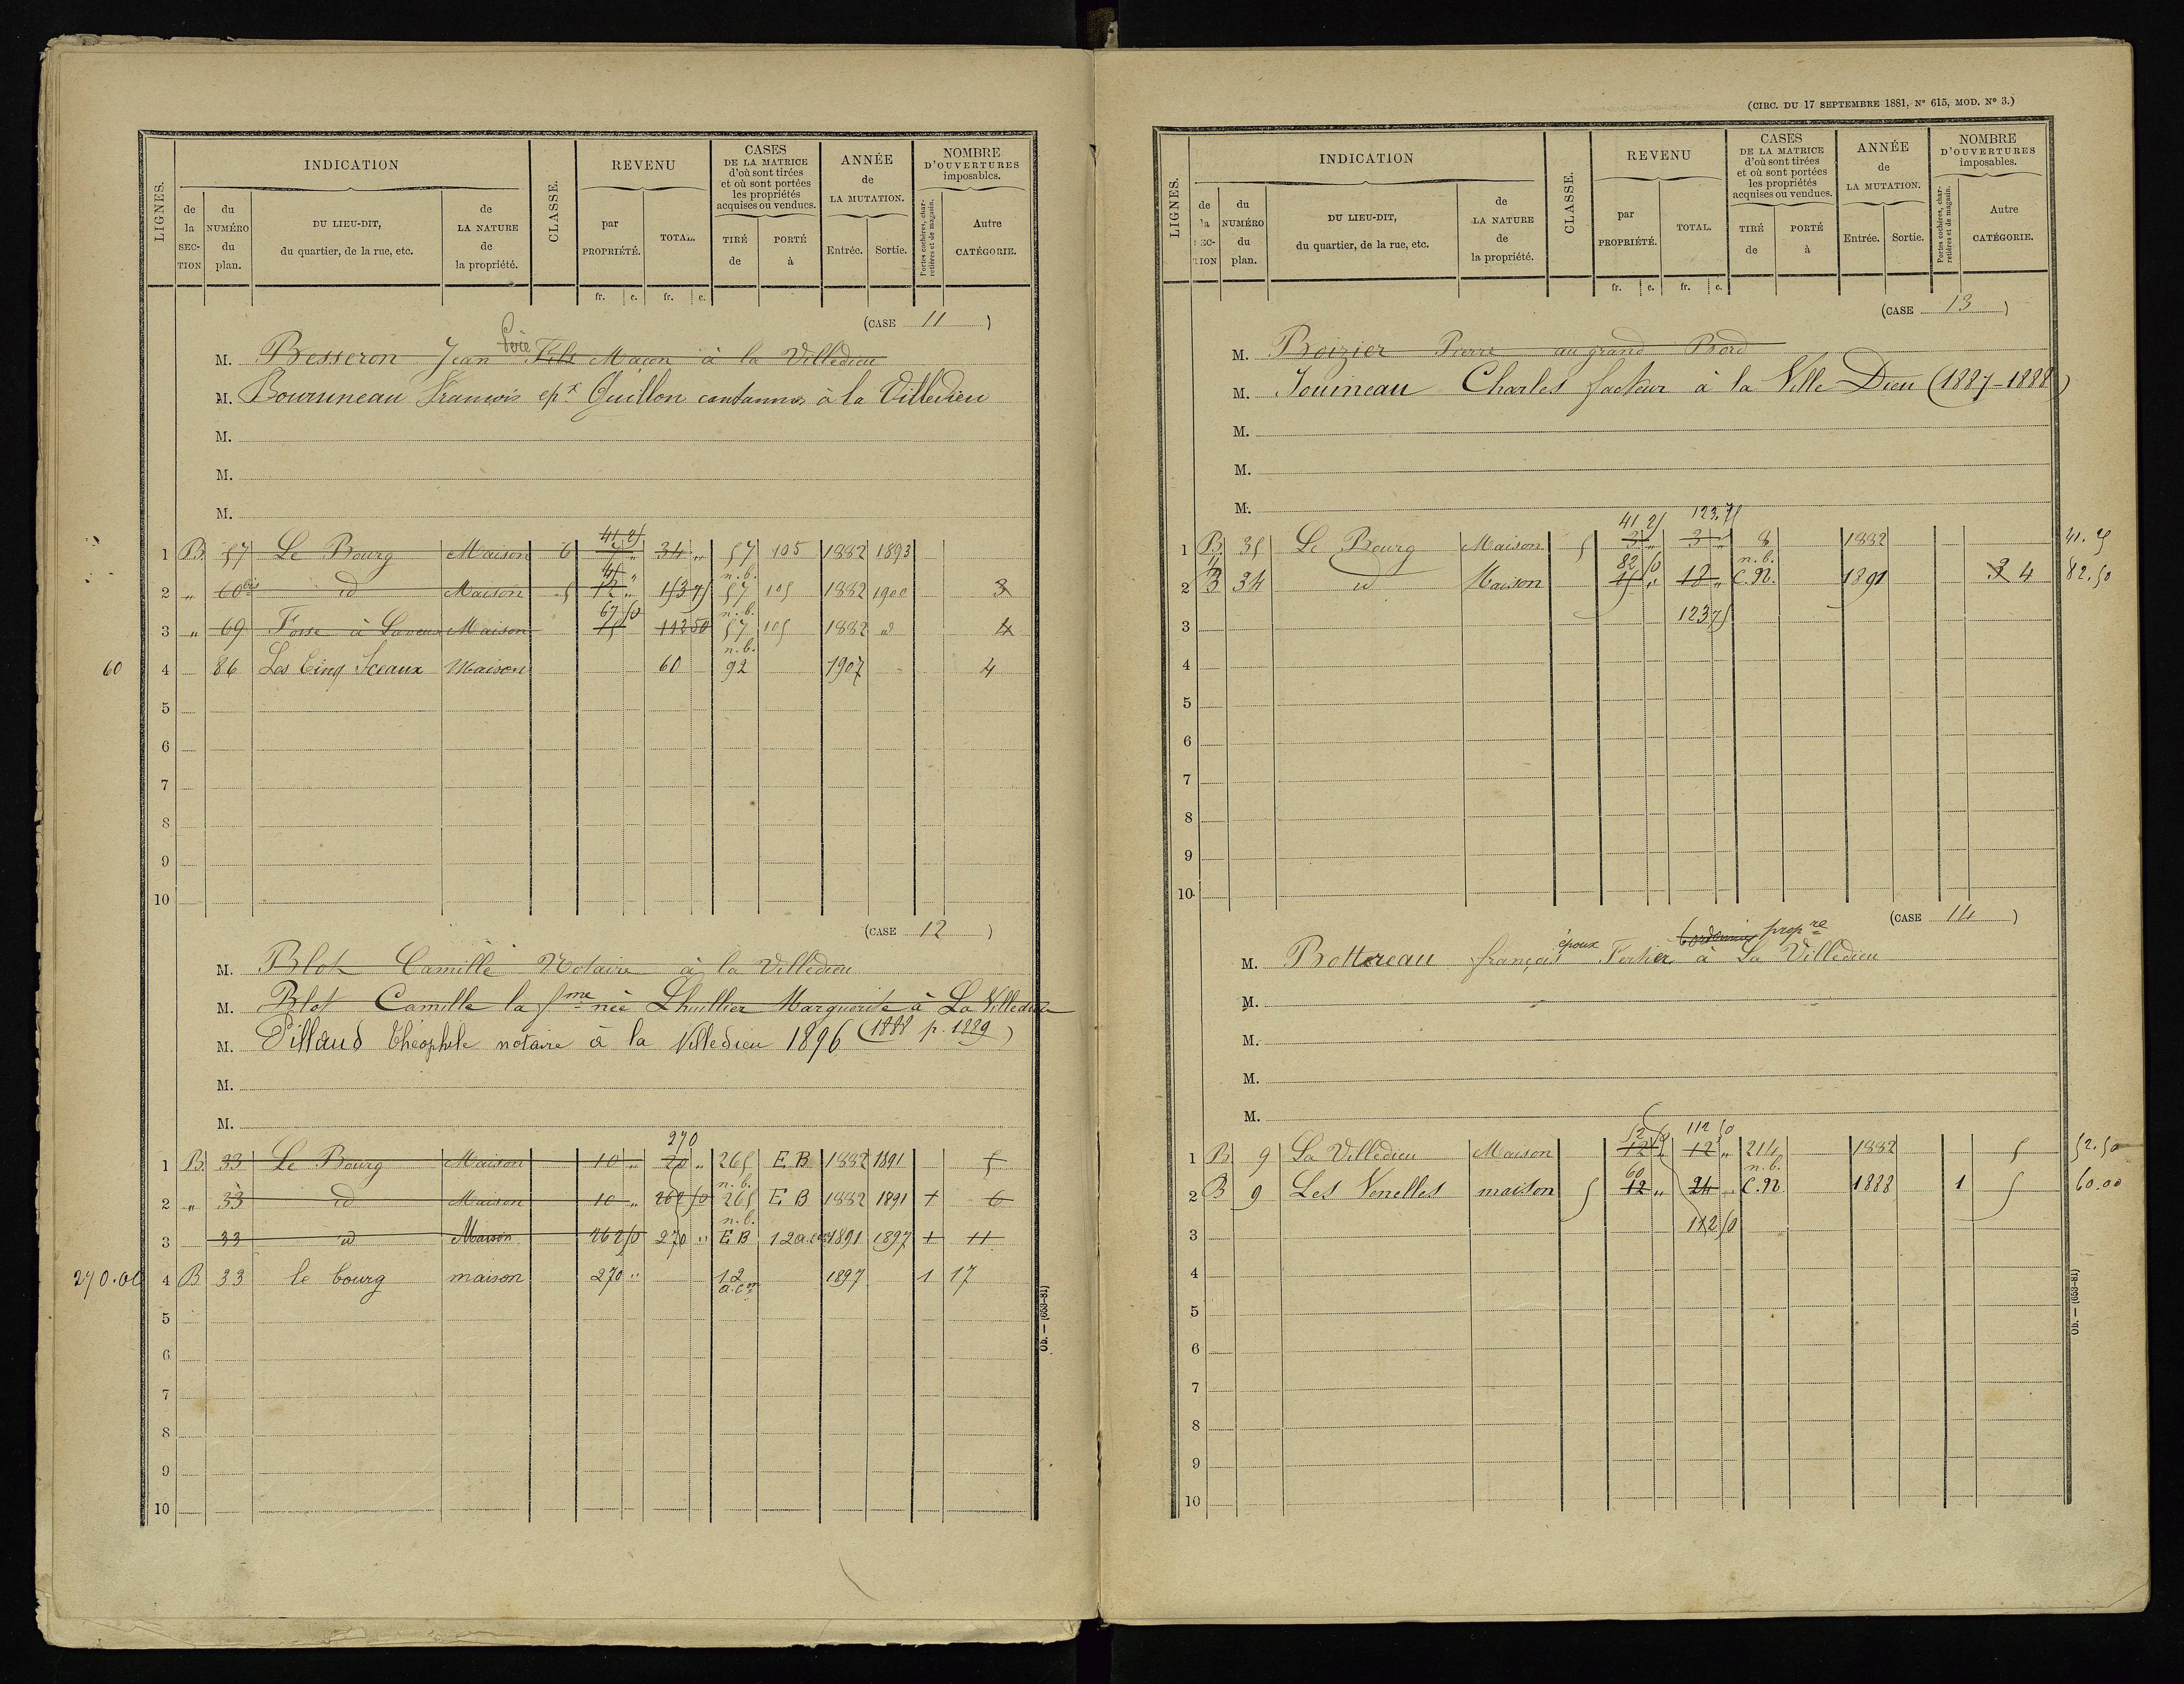 LIGNES. INDICATION CLASSE. REVENU CASES DE LA MATRICE d'où sont tirées et où sont portées les propriétés acquises ou vendues. ANNÉE de LA MUTATION. NOMBRE D'OUVERTURES imposables.
de la SECTION du NUMÉRO du plan. DU LIEU-DIT, du quartier, de la rue, etc. de LA NATURE de la propriété. par PROPRIÉTÉ. TOTAL. TIRÉ de PORTÉ à Entrée. Sortie. Portes cochères, charretières et de magasin. Autre CATÉGORIE.
fr. c. fr. c.
(CASE 11)
M. Besseron Jean Fils Père Maçon à la Villedieu
M. Bourumeau François epx Guillon à la Villedieu
M.
M.
M.
1 B. 57 Le Bourg Maison 6 7 " 41 25 34 " 57 105 1882 1893
2 " 60 bis id Maison 5 12 " 45 " 153 75 57 n.b. 105 1882 1900 3
3 " 69 Fosse à Maison 15 67 50 112 50 57 n.b. 105 1882 d 4
60 4 86 Les Cinq Sceaux Maison 60 n.b. 92 1907 4
5
6
7
8
9
10
(CASE 12)
M. Blot Camille Notaire à la Villedieu
M. Blot Camille la fme née Lhuillier Marguerite à La Villedieu
M. Pillaud Théophile notaire à la Villedieu 1896 (1888 p. 1889)
M.
M.
1 B. 33 Le Bourg Maison 10 " 20 " 270 265 E B 1882 1891 5
2 " 33 id Maison 10 " 262 50 n.b. 265 E B 1882 1891 1 6
3 33 id Maison 262 50 270 " n.b. E B 12 a.c. 1891 1897 1 11
270.00 4 B 33 le bourg maison 270 " 12 a.con 1897 1 17
5
6
7
8
9
10
Ob. — (653-81)
(CIRC. DU 17 SEPTEMBRE 1881, N° 615, MOD. N° 3.)
LIGNES. INDICATION CLASSE. REVENU CASES DE LA MATRICE d'où sont tirées et où sont portées les propriétés acquises ou vendues. ANNÉE de LA MUTATION. NOMBRE D'OUVERTURES imposables.
de la SECTION du NUMÉRO du plan. DU LIEU-DIT, du quartier, de la rue, etc. de LA NATURE de la propriété. par PROPRIÉTÉ. TOTAL. TIRÉ de PORTÉ à Entrée. Sortie. Portes cochères, charretières et de magasin. Autre CATÉGORIE.
fr. c. fr. c.
(CASE 13)
M. Boizier Pierre au grand Bord
M. Jouineau Charles facteur à la Ville Dieu (1887-1888)
M.
M.
M.
1 B. 35 Le Bourg Maison 5 3 " 41 25 3 " 123.75 8 1882 41.25
2 B 34 id Maison 15 " 82 50 18 " n.b. C.N. 1891 3 4 82.50
3 123 75
4
5
6
7
8
9
10
(CASE 14)
M. Bottereau françois époux Fertier Cordonnier propre à La Villedieu
M.
M.
M.
M.
1 B. 9 La Villedieu Maison 12 " 52 50 12 " 112 50 214 1882 5 52.50
2 B 9 Les Venelles maison 5 12 " 60 24 " n.b. C.N. 1888 1 5 60.00
3 112 50
4
5
6
7
8
9
10
Ob. — (653-81)